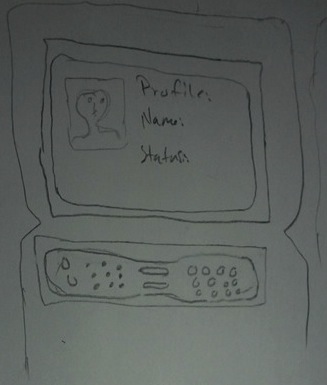 Profile:
Name:
Status: